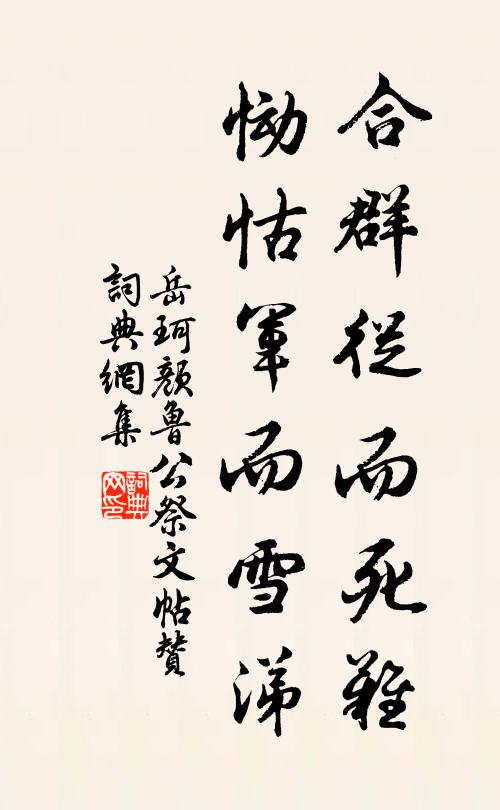 合群從而死難
恸怙軍而雪涕
岳珂顏魯公祭文帖贊
詞典網集
詞典网印